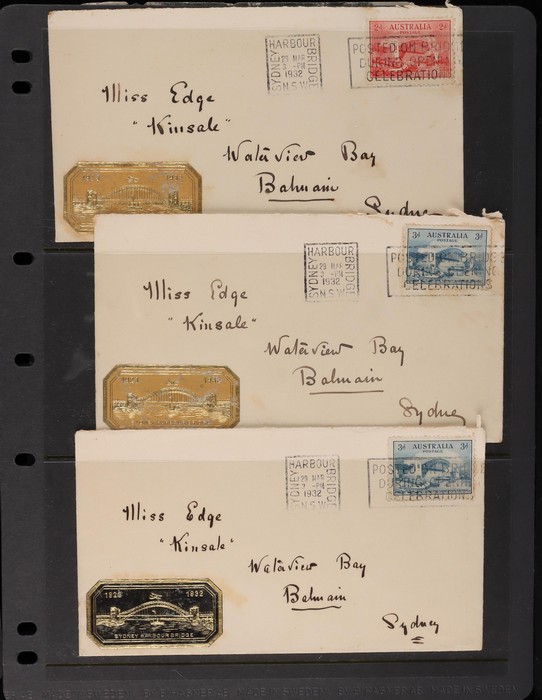 SYDNEY HARBOUR BRIDGE
29 MAR
3 -PM
1932
N.S.W.
POSTED ON BRIDGE
DURING OPENING
CELEBRATIONS
2d AUSTRALIA 2d
POSTAGE
Miss Edge
"Kinsale"
Waterview Bay
Balmain
Sydney
SYDNEY HARBOUR BRIDGE
29 MAR
3 -PM
1932
N.S.W.
POSTED ON BRIDGE
DURING OPENING
CELEBRATIONS
3d AUSTRALIA 3d
POSTAGE
Miss Edge
"Kinsale"
Waterview Bay
Balmain
Sydney
SYDNEY HARBOUR BRIDGE
29 MAR
1932
N.S.W.
POSTED ON BRIDGE
DURING OPENING
CELEBRATIONS
3d AUSTRALIA 3d
POSTAGE
Miss Edge
"Kinsale"
Waterview Bay
Balmain
Sydney
1932
SYDNEY HARBOUR BRIDGE
MADE IN SWEDEN